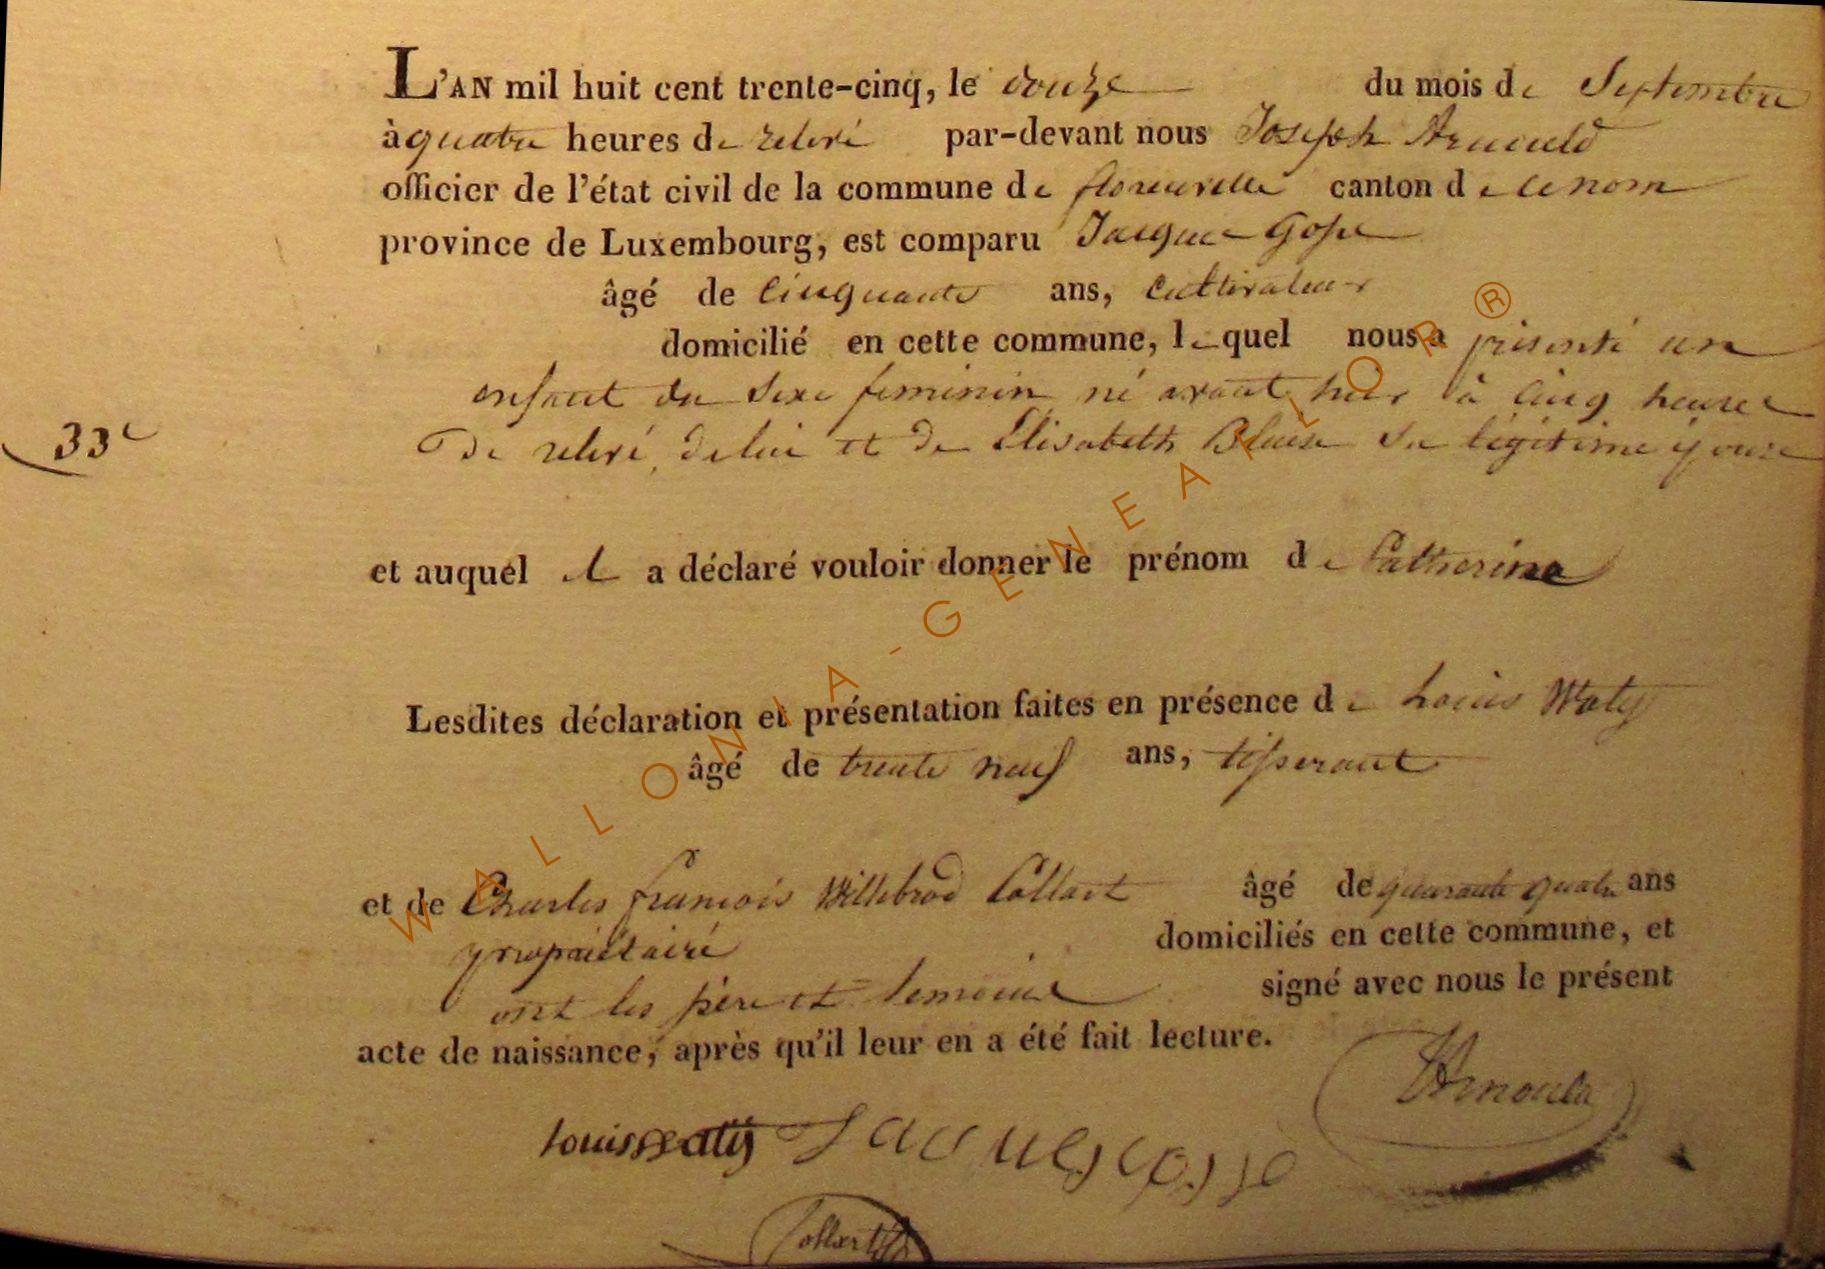 L'AN mil huit cent trente-cinq, le douze du mois de Septembre
à quatre heures de relevé par-devant nous Joseph Arnould
officier de l'état civil de la commune de florenville canton de ce nom
province de Luxembourg, est comparu Jacques Gosse
âgé de cinquante ans, cultivateur
domicilié en cette commune, lequel nous a présenté un
enfant du sexe feminin né avant hier à cinq heures
33e
de relevé, de lui et de Elisabeth Blaise sa légitime épouse
et auquel il a déclaré vouloir donner le prénom de Catherine
Lesdites déclaration et présentation faites en présence de Louis Waty
âgé de trente neuf ans, tisserant
et de Charles françois Willebrod Collart âgé de quarante quatre ans
propriétaire domiciliés en cette commune, et
ont les père et temoins signé avec nous le présent
acte de naissance, après qu'il leur en a été fait lecture.
JArnould
louis waty Jacques gosse
Collart
WALLONIA-GENEALOR ®